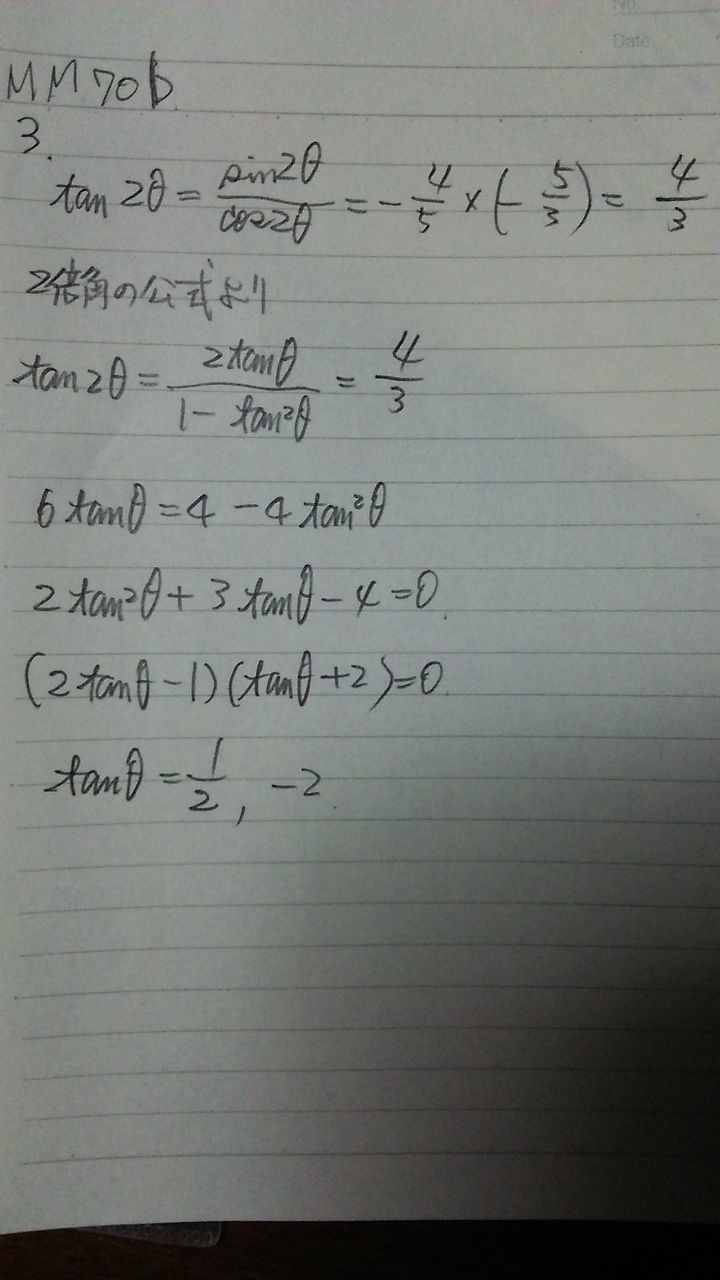 No.
Date
MM70b
3.
tan 2θ = sin2θ/cos2θ = -4/5 × (-5/3) = 4/3
2倍角の公式より
tan2θ = 2tanθ/1-tan²θ = 4/3
6tanθ = 4 - 4tan²θ
2tan²θ + 3tanθ - 4 = 0.
(2tanθ - 1)(tanθ + 2) = 0.
tanθ = 1/2, -2.